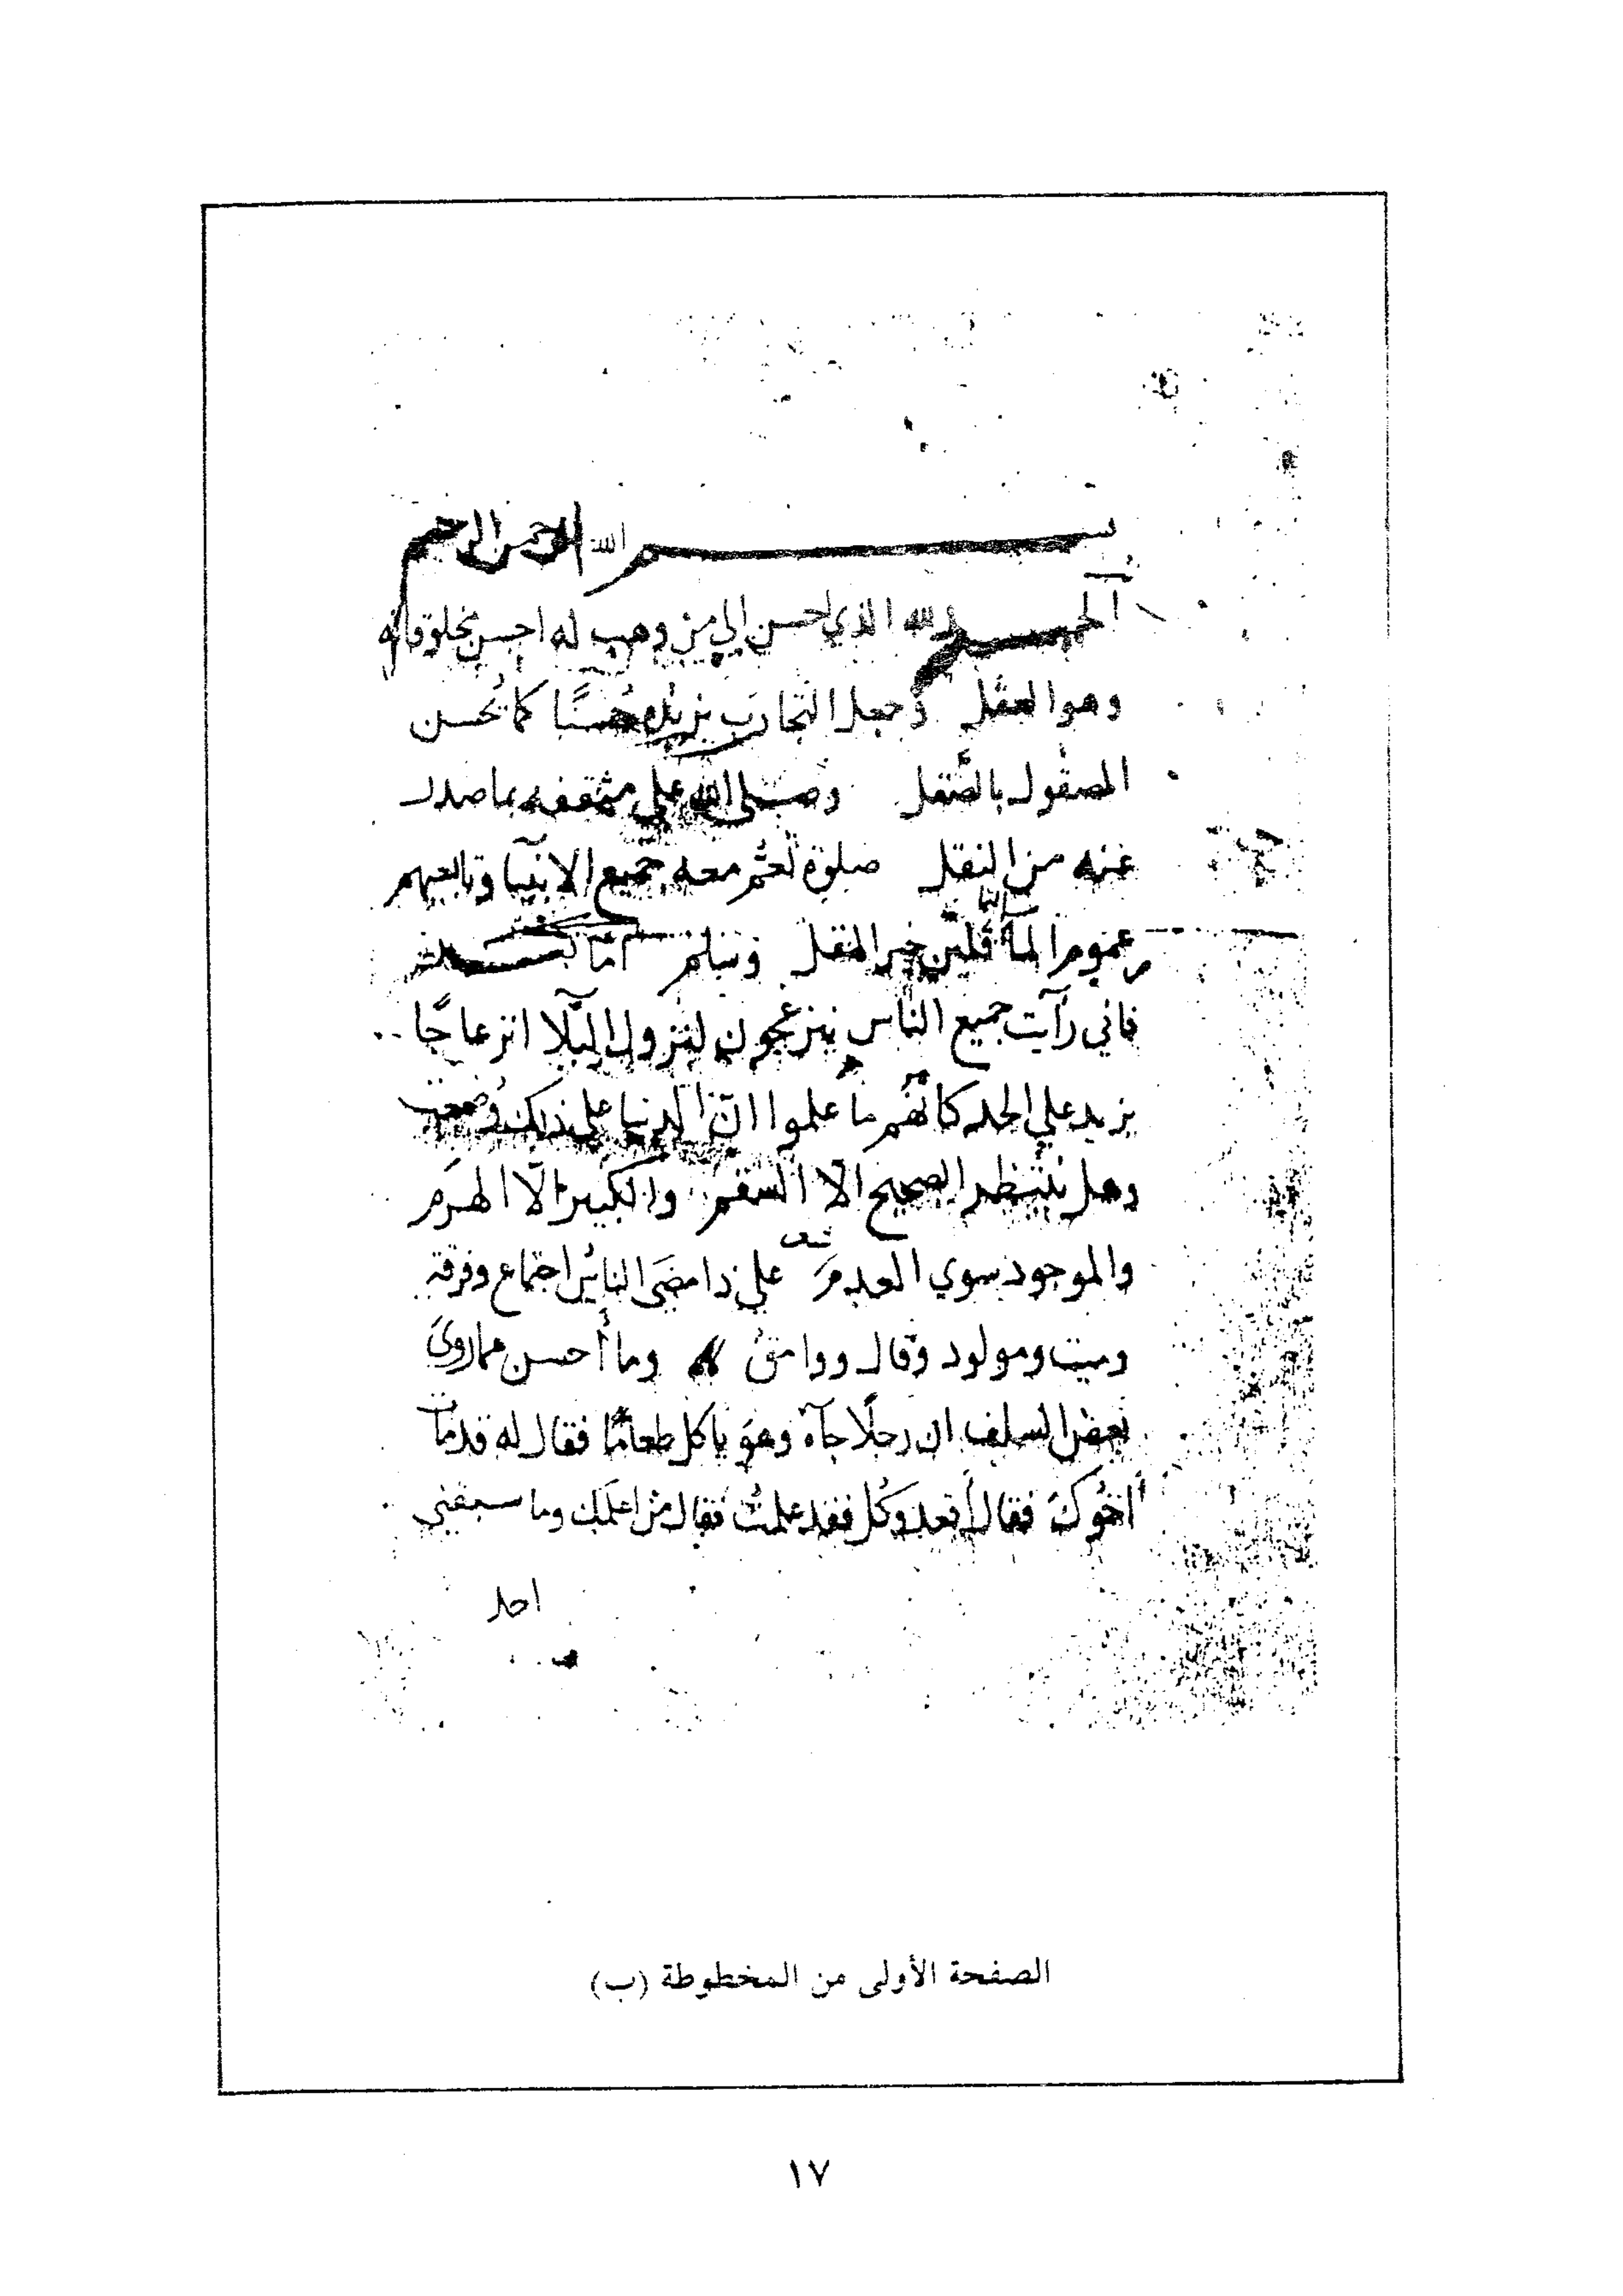 بسم الله الرحمن الرحيم
الحمد لله الذي احسن الي من وهب له احسن مخلوقاته
وهو العقل وجعل التجارب يزيده حُسنًا كما يُحسن
المصقول بالصَّقل وصلى الله علي مثقفه بما صدر
عنه من النقل صلوة تعُم معه جميع الانبيآ وتابعيهم
عموم
خير المنقل وسلم
فاني رآيت جميع الناس ينزعجون لنزول البلآ انزعاجًا
يزيد علي الحد كانهُم ما علموا انّ الدنيا علي ذلك وُضعت
وهل ينتظر الصحيح الّا السقم والكبير الّا الهَرَم
والموجود سوي العدم شعر علي ذا مضَى الناسُ اجتماع وفرقة
وميت ومولود وقال ووامقُ وما أحسن مما رويَ
بعض السلف ان رجلًا جآه وهوَ ياكل طعامًا فقال له قد مات
اخُوكَ فقال أقعد وَكُل فقد علمتُ فقال من اعلَمك وما سبقني
احد
الصفحة الأولى من المخطوطة (ب)
١٧